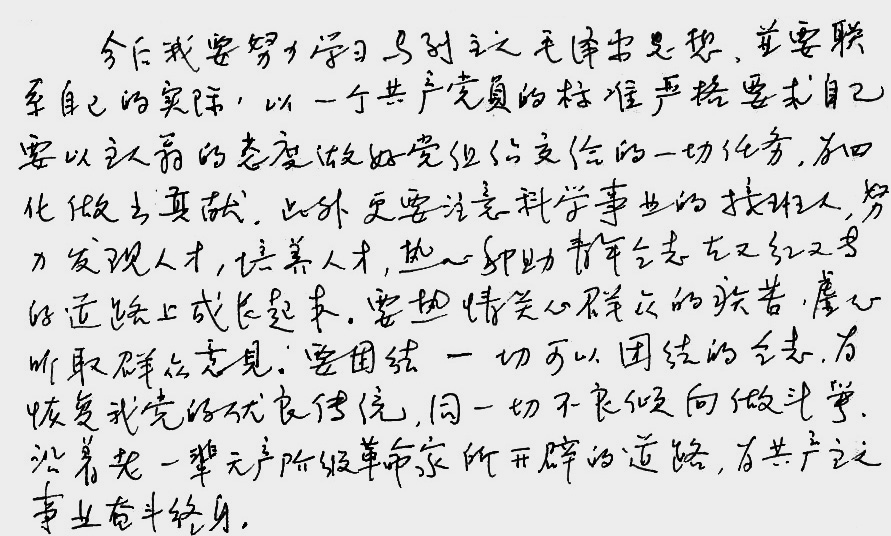 今后我要努力学习马列主义毛泽东思想，并要联
系自己的实际，以一个共产党员的标准严格要求自己
要以主人翁的态度做好党组织交给的一切任务，为四
化做出贡献。此外更要注意科学事业的接班人，努
力发现人才，培养人才，热心帮助青年同志在又红又专
的道路上成长起来。要热情关心群众的疾苦，虚心
听取群众意见。要团结一切可以团结的同志，为
恢复我党的优良传统，同一切不良倾向做斗争。
沿着老一辈无产阶级革命家所开辟的道路，为共产主义
事业奋斗终身。